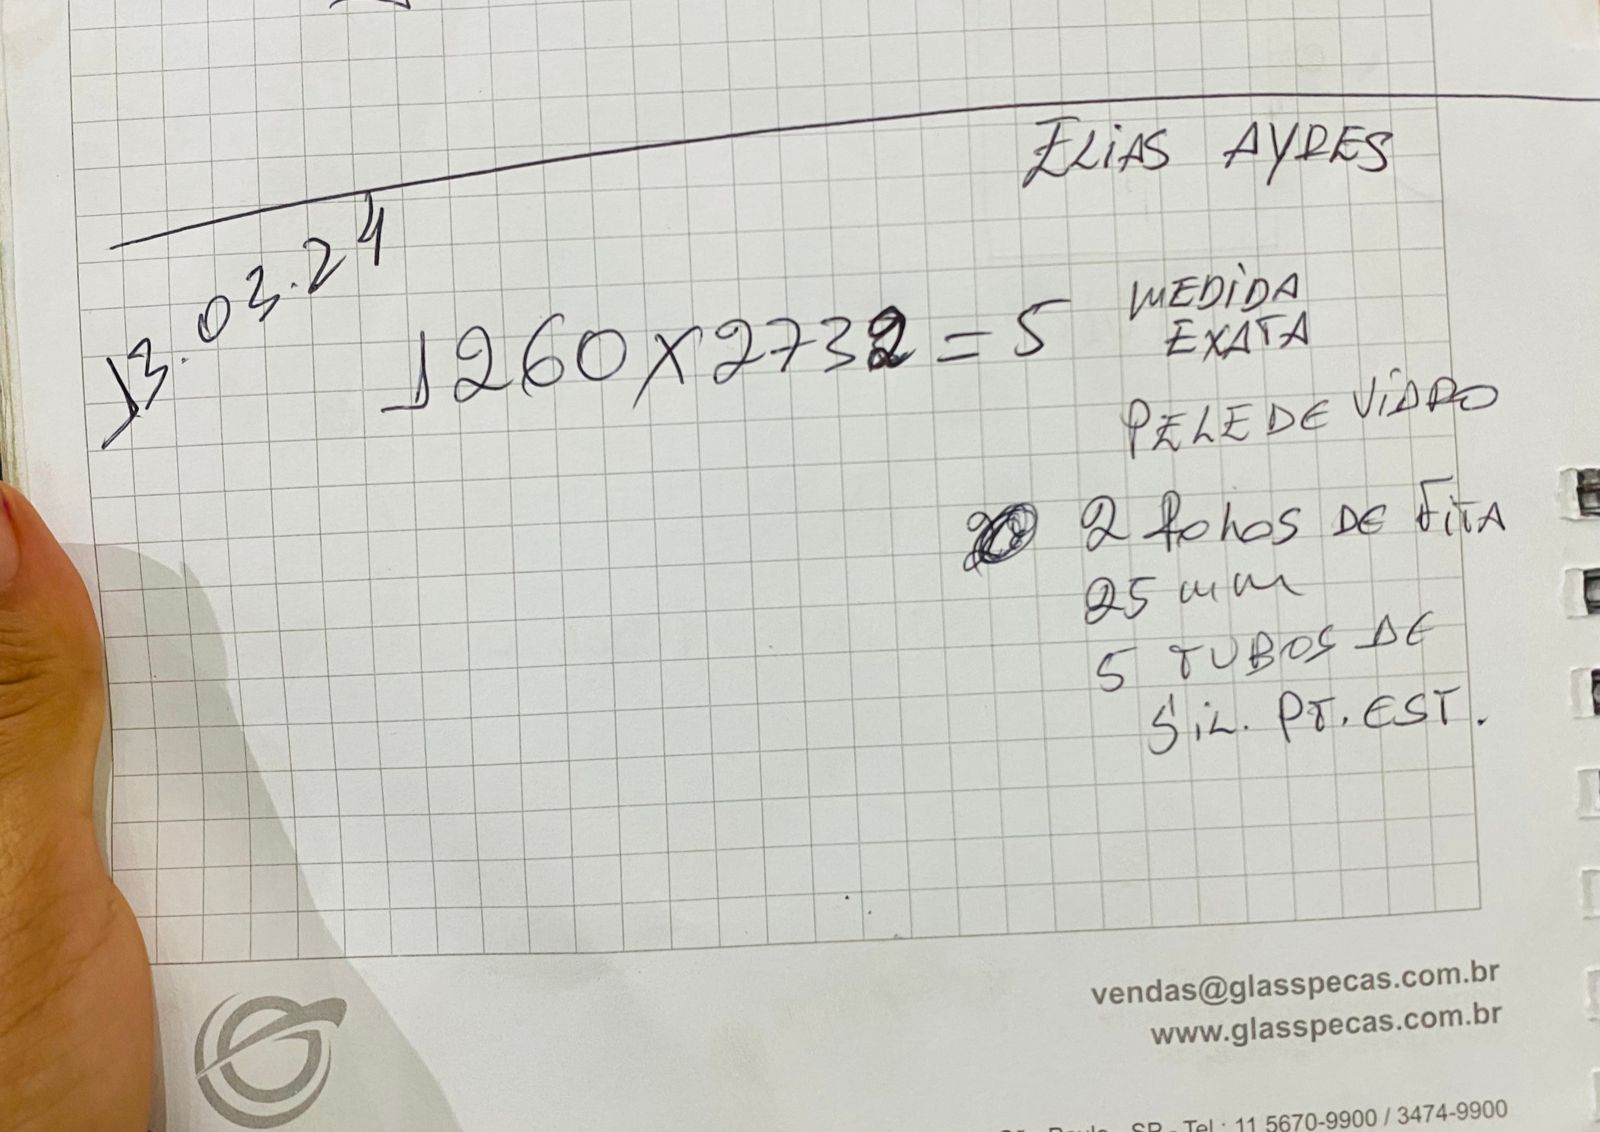 ELIAS AYRES
13.03.24
1260 X 2732 = 5
MEDIDA
EXATA
PELE DE VIDRO
2 Rolos DE FITA
25 mm
5 TUBOS DE
SIL. PT. EST.
vendas@glasspecas.com.br
www.glasspecas.com.br
Paulo - SP - Tel.: 11 5670-9900 / 3474-9900